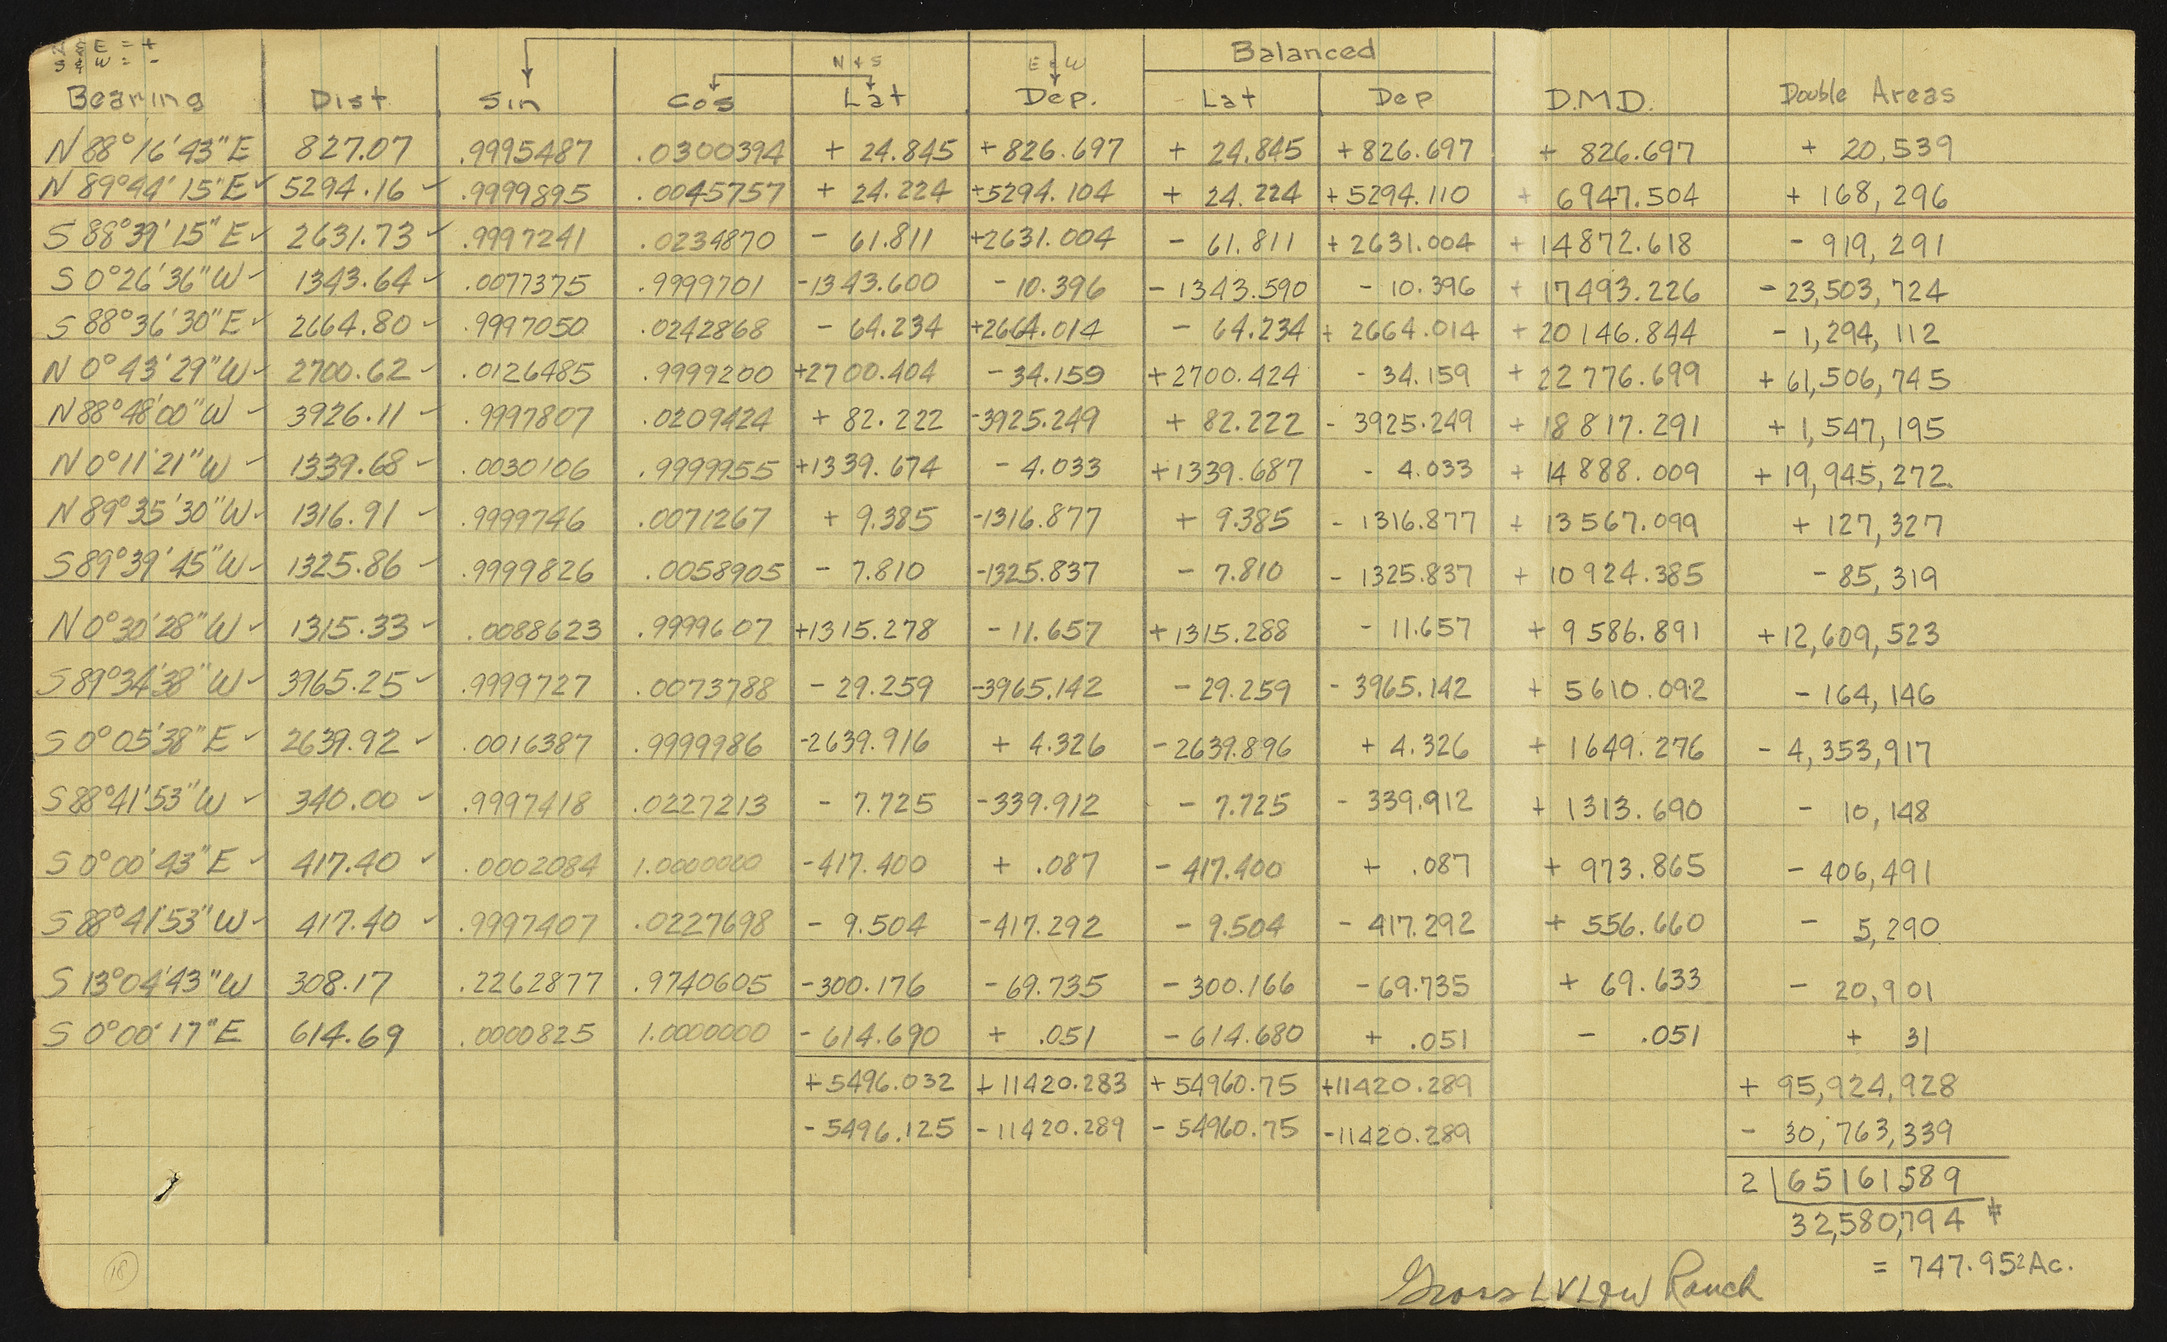 N & E = +
S & W = -
N & S E & W Balanced
Bearing Dist. Sin Cos Lat Dep. Lat Dep D.M.D. Double Areas
N 88° 16' 43" E 827.07 .9995487 .0300394 + 24.845 + 826.697 + 24.845 + 826.697 + 826.697 + 20,539
N 89° 44' 15" E ✓ 5294.16 ✓ .9999895 .0045757 + 24.224 +5294.104 + 24.224 + 5294.110 + 6947.504 + 168,296
S 88° 39' 15" E ✓ 2631.73 ✓ .9997241 .0234870 - 61.811 +2631.004 - 61.811 + 2631.004 + 14872.618 - 919,291
S 0° 26' 36" W ✓ 1343.64 ✓ .0077375 .9999701 -1343.600 - 10.396 - 1343.590 - 10.396 + 17493.226 - 23,503,724
S 88° 36' 30" E ✓ 2664.80 ✓ .9997050 .0242868 - 64.234 +2664.014 - 64.234 + 2664.014 + 20146.844 - 1,294,112
N 0° 43' 29" W ✓ 2700.62 ✓ .0126485 .9999200 +2700.404 - 34.159 +2700.424 - 34.159 + 22776.699 + 61,506,745
N 88° 48' 00" W ✓ 3926.11 ✓ .9997807 .0209424 + 82.222 -3925.249 + 82.222 - 3925.249 + 18817.291 + 1,547,195
N 0° 11' 21" W ✓ 1339.68 ✓ .0030106 .9999955 +1339.674 - 4.033 +1339.687 - 4.033 + 14888.009 + 19,945,272
N 89° 35' 30" W ✓ 1316.91 ✓ .9999746 .0071267 + 9.385 -1316.877 + 9.385 - 1316.877 + 13567.099 + 127,327
S 89° 39' 45" W ✓ 1325.86 ✓ .9999826 .0058905 - 7.810 -1325.837 - 7.810 - 1325.837 + 10924.385 - 85,319
N 0° 30' 28" W ✓ 1315.33 ✓ .0088623 .9999607 +1315.278 - 11.657 +1315.288 - 11.657 + 9586.891 + 12,609,523
S 89° 34' 38" W ✓ 3965.25 ✓ .9999727 .0073788 - 29.259 -3965.142 - 29.259 - 3965.142 + 5610.092 - 164,146
S 0° 05' 38" E ✓ 2639.92 ✓ .0016387 .9999986 -2639.916 + 4.326 - 2639.896 + 4.326 + 1649.276 - 4,353,917
S 88° 41' 53" W ✓ 340.00 ✓ .9997418 .0227213 - 7.725 -339.912 - 7.725 - 339.912 + 1313.690 - 10,148
S 0° 00' 43" E ✓ 417.40 ✓ .0002084 1.0000000 -417.400 + .087 - 417.400 + .087 + 973.865 - 406,491
S 88° 41' 53" W ✓ 417.40 ✓ .9997407 .0227698 - 9.504 -417.292 - 9.504 - 417.292 + 556.660 - 5,290
S 13° 04' 43" W 308.17 .2262877 .9740605 -300.176 - 69.735 - 300.166 - 69.735 + 69.633 - 20,901
S 0° 00' 17" E 614.69 .0000825 1.0000000 - 614.690 + .051 - 614.680 + .051 - .051 + 31
+5496.032 + 11420.283 + 54960.75 +11420.289 + 95,924,928
- 5496.125 - 11420.289 - 54960.75 -11420.289 - 30,763,339
2 65161589
32,580,794
= 747.952 Ac.
Gross Ranch
18